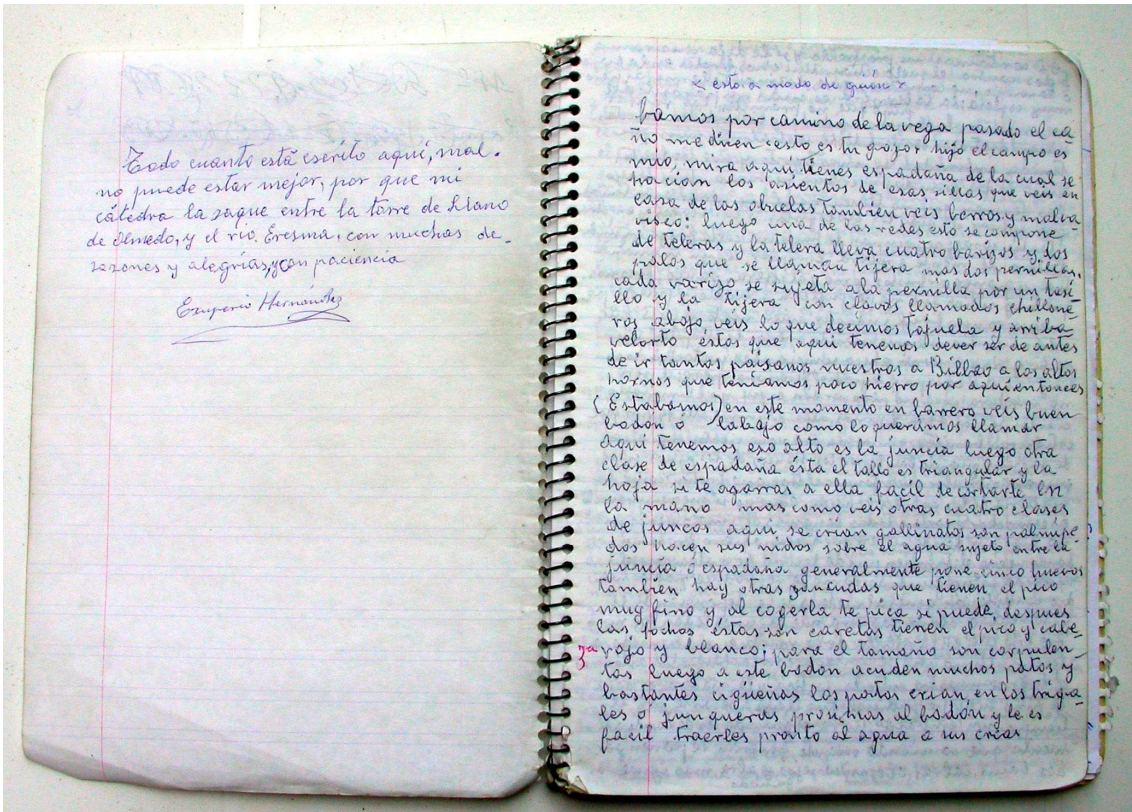 Todo cuanto está escrito aquí, mal.
no puede estar mejor, por que mi
cátedra la saque entre la torre de Llano
de Olmedo, y el río Eresma, con muchas de-
sazones y alegrías, y con paciencia
Exuperio Hernández
< esto a modo de guión >
bamos por camino de la vega pasado el ca
ño me dicen esto es tu gozo, hijo el campo es
mío, mira aquí tienes espadaña de la cual se
hacían los asientos de esas sillas que veis en
casa de las abuelas también veis berros y malva
visco; luego una de las redes esto se compone
de teleras y la telera lleva cuatro barizos y dos
palos que se llaman tijera mas dos pernillas,
cada varizo se sujeta a la pernilla por un tasi
llo y la tijera con clavos llamados chillone
ros abajo, veis lo que decimos tajuela y arriba
velorto éstos que aquí tenemos dever ser de antes
de ir tantos paisanos nuestros a Bilbao a los altos
hornos que teníamos poco hierro por aquí entonces
(Estabamos) en este momento en barrero veis buen
bodón o labajo como lo queramos llamar
aquí tenemos eso alto es la juncia luego otra
clase de espadaña ésta el tallo es triangular y la
hoja si te agarras a ella facil de cortarte en
la mano mas como veis otras cuatro clases
de juncos aquí se crian gallinatos son palmípe-
dos hacen sus nidos sobre el agua sujeto entre la
juncia o espadaña generalmente pone cinco huevos
también hay otras zancudas que tienen el pico
muy fino y al cogerla te pica si puede, despues
las fochas éstas son caretas tienen el pico y cabe-
3ª
rojo y blanco; para el tamaño son corpulen-
tas luego a este bodón acuden muchos patos y
bastantes cigüeñas los patos crian, en los triga-
les o junqueras prosimas al bodón y le es
facil traerles pronto al agua a sus crías